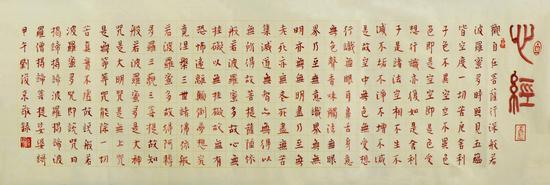 心經
觀自在菩薩行深般若
波羅蜜多時照見五蘊
皆空度一切苦厄舍利
子色不異空空不異色
色即是空空即是色受
想行識亦復如是舍利
子是諸法空相不生不
滅不垢不淨不增不減
是故空中無色無受想
行識無眼耳鼻舌身意
無色聲香味觸法無眼
界乃至無意識界無無
明亦無無明盡乃至無
老死亦無老死盡無苦
集滅道無智亦無得以
無所得故菩提薩埵依
般若波羅蜜多故心無
挂礙以無挂礙故無有
恐怖遠離顛倒夢想究
竟涅槃三世諸佛依般
若波羅蜜多故得阿耨
多羅三藐三菩提故知
般若波羅蜜多是大神
咒是大明咒是無上咒
是無等等咒能除一切
苦真實不虛故說般若
波羅蜜多咒即說咒曰
揭諦揭諦波羅揭諦波
羅僧揭諦菩提娑婆訶
甲午劉漢敬錄